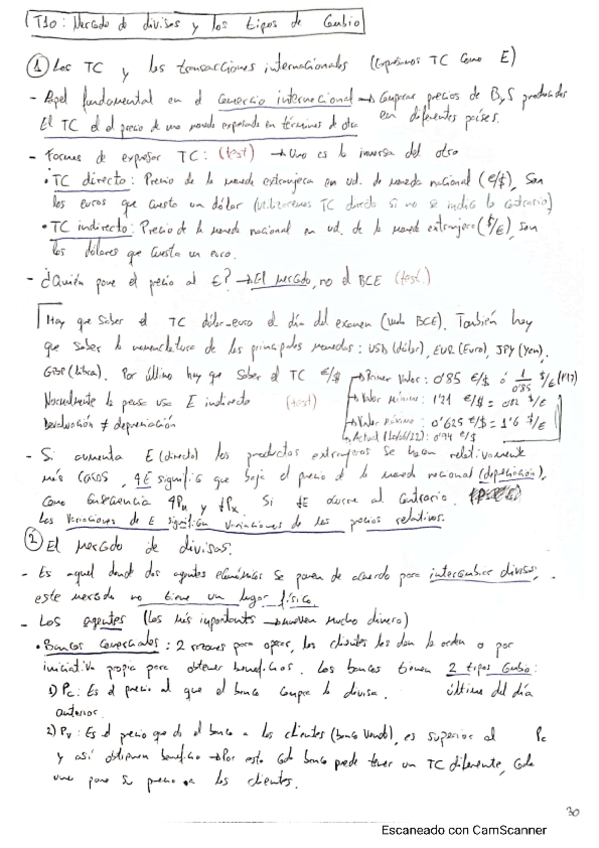 T10: Mercado de divisas y los tipos de Cambio
① Los TC y las transacciones internacionales (Expresamos TC como E)
- Papel fundamental en el comercio internacional → Comparar precios de B y S producidos
El TC el el precio de una moneda expresada en términos de otra en diferentes países.
- Formas de expresar TC: (test) → Uno es la inversa del otro
• TC directo: Precio de la moneda extranjera en ud. de moneda nacional (€/$), Son
los euros que cuesta un dólar (utilizaremos TC directo si no se indica lo contrario)
• TC indirecto: Precio de la moneda nacional en ud. de la moneda extranjera ($/€), son
los dólares que cuesta un euro.
- ¿Quién pone el precio al €? → El mercado, no el BCE (test)
Hay que saber el TC dólar-euro el día del examen (web BCE). También hay
que saber la nomenclatura de las principales monedas: USD (dólar), EUR (Euro), JPY (Yen),
GBP (libra). Por último hay que saber el TC €/$ → Primer Valor: 0'85 €/$ ó 1/0'85 $/€ (1'17)
Normalmente la prensa usa E indirecto (test) → Valor Mínimo: 1'21 €/$ = 0'82 $/€
Devaluación ≠ depreciación → Valor Máximo: 0'625 €/$ = 1'6 $/€
→ Actual (10/6/22): 0'94 €/$
- Si aumenta E (directo) los productos extranjeros se hacen relativamente
más caros, ↑E significa que baja el precio de la moneda nacional (depreciación),
como consecuencia ↑Pm y ↓Px. Si ↓E ocurre al contrario.
Las variaciones de E significan variaciones de los precios relativos.
② El mercado de divisas.
- Es aquel donde dos agentes económicos se ponen de acuerdo para intercambiar divisas,
este mercado no tiene un lugar físico.
- Los agentes (los más importantes → mueven mucho dinero)
• Bancos Comerciales: 2 razones para operar, los clientes les dan la orden o por
iniciativa propia para obtener beneficios. Los bancos tienen 2 tipos Cambio:
1) Pc: Es el precio al que el banco compra la divisa. último del día
anterior.
2) Pv: Es el precio que da el banco a los clientes (banco vende), es superior al Pc
y así obtienen beneficio → Por esto cada banco puede tener un TC diferente, cada
uno pone su precio a los clientes.
30
Escaneado con CamScanner